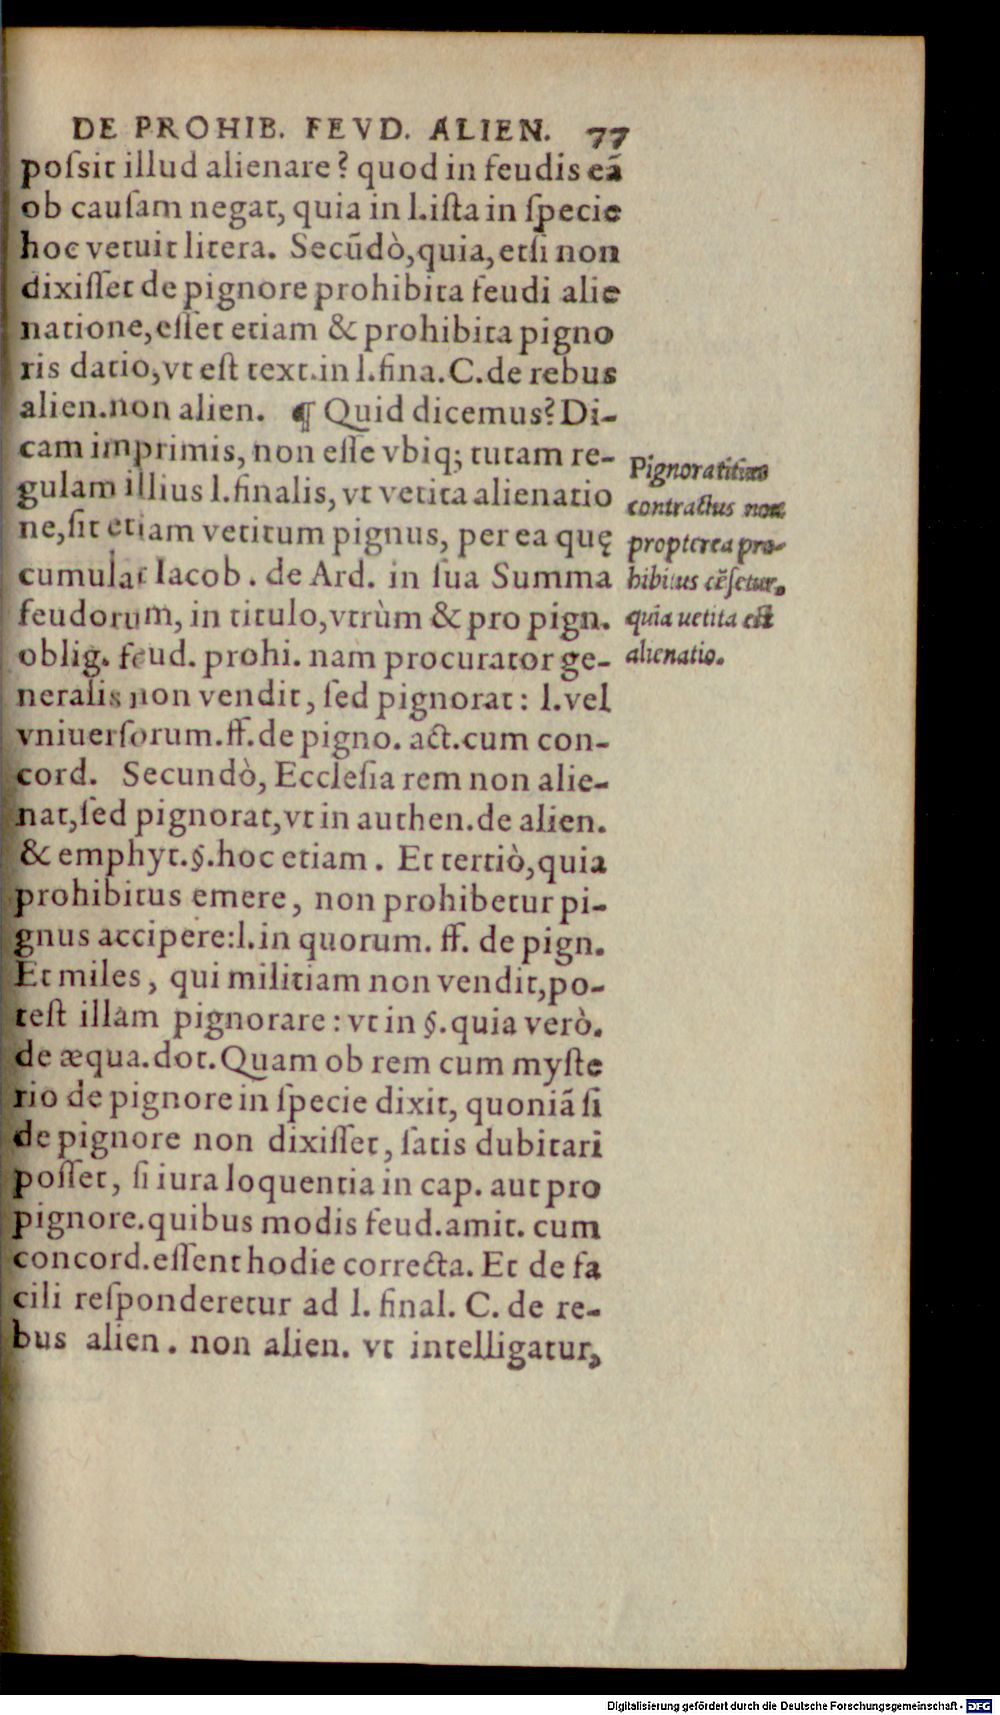 DE PROHIB. FEVD. ALIEN. 77
poſsit illud alienare? quod in feudis eã
ob cauſam negat, quia in l.iſta in ſpecie
hoc vetuit litera. Secũdò, quia, etſi non
dixiſſet de pignore prohibita feudi alie
natione, eſſet etiam & prohibita pigno
ris datio, vt eſt text.in l.fina.C.de rebus
alien.non alien. ¶ Quid dicemus? Di-
cam imprimis, non eſſe vbiq; tutam re-
gulam illius l.finalis, vt vetita alienatio
ne, ſit etiam vetitum pignus, per ea quę
cumulat Iacob. de Ard. in ſua Summa
feudorum, in titulo, vtrùm & pro pign.
oblig. feud. prohi. nam procurator ge-
neralis non vendit, ſed pignorat: l.vel
vniuerſorum.ff.de pigno. act.cum con-
cord. Secundò, Eccleſia rem non alie-
nat, ſed pignorat, vt in authen.de alien.
& emphyt.§.hoc etiam. Et tertiò, quia
prohibitus emere, non prohibetur pi-
gnus accipere:l.in quorum. ff. de pign.
Et miles, qui militiam non vendit, po-
teſt illam pignorare: vt in §.quia verò.
de æqua.dot. Quam ob rem cum myſte
rio de pignore in ſpecie dixit, quoniã ſi
de pignore non dixiſſet, ſatis dubitari
poſſet, ſi iura loquentia in cap. aut pro
pignore.quibus modis feud.amit. cum
concord.eſſent hodie correcta. Et de fa
cili reſponderetur ad l. final. C. de re-
bus alien. non alien. vt intelligatur,
Pignoratitius
contractus non
propterea pro-
hibitus cẽſetur,
quia uetita eſt
alienatio.
Digitalisierung gefördert durch die Deutsche Forschungsgemeinschaft - DFG